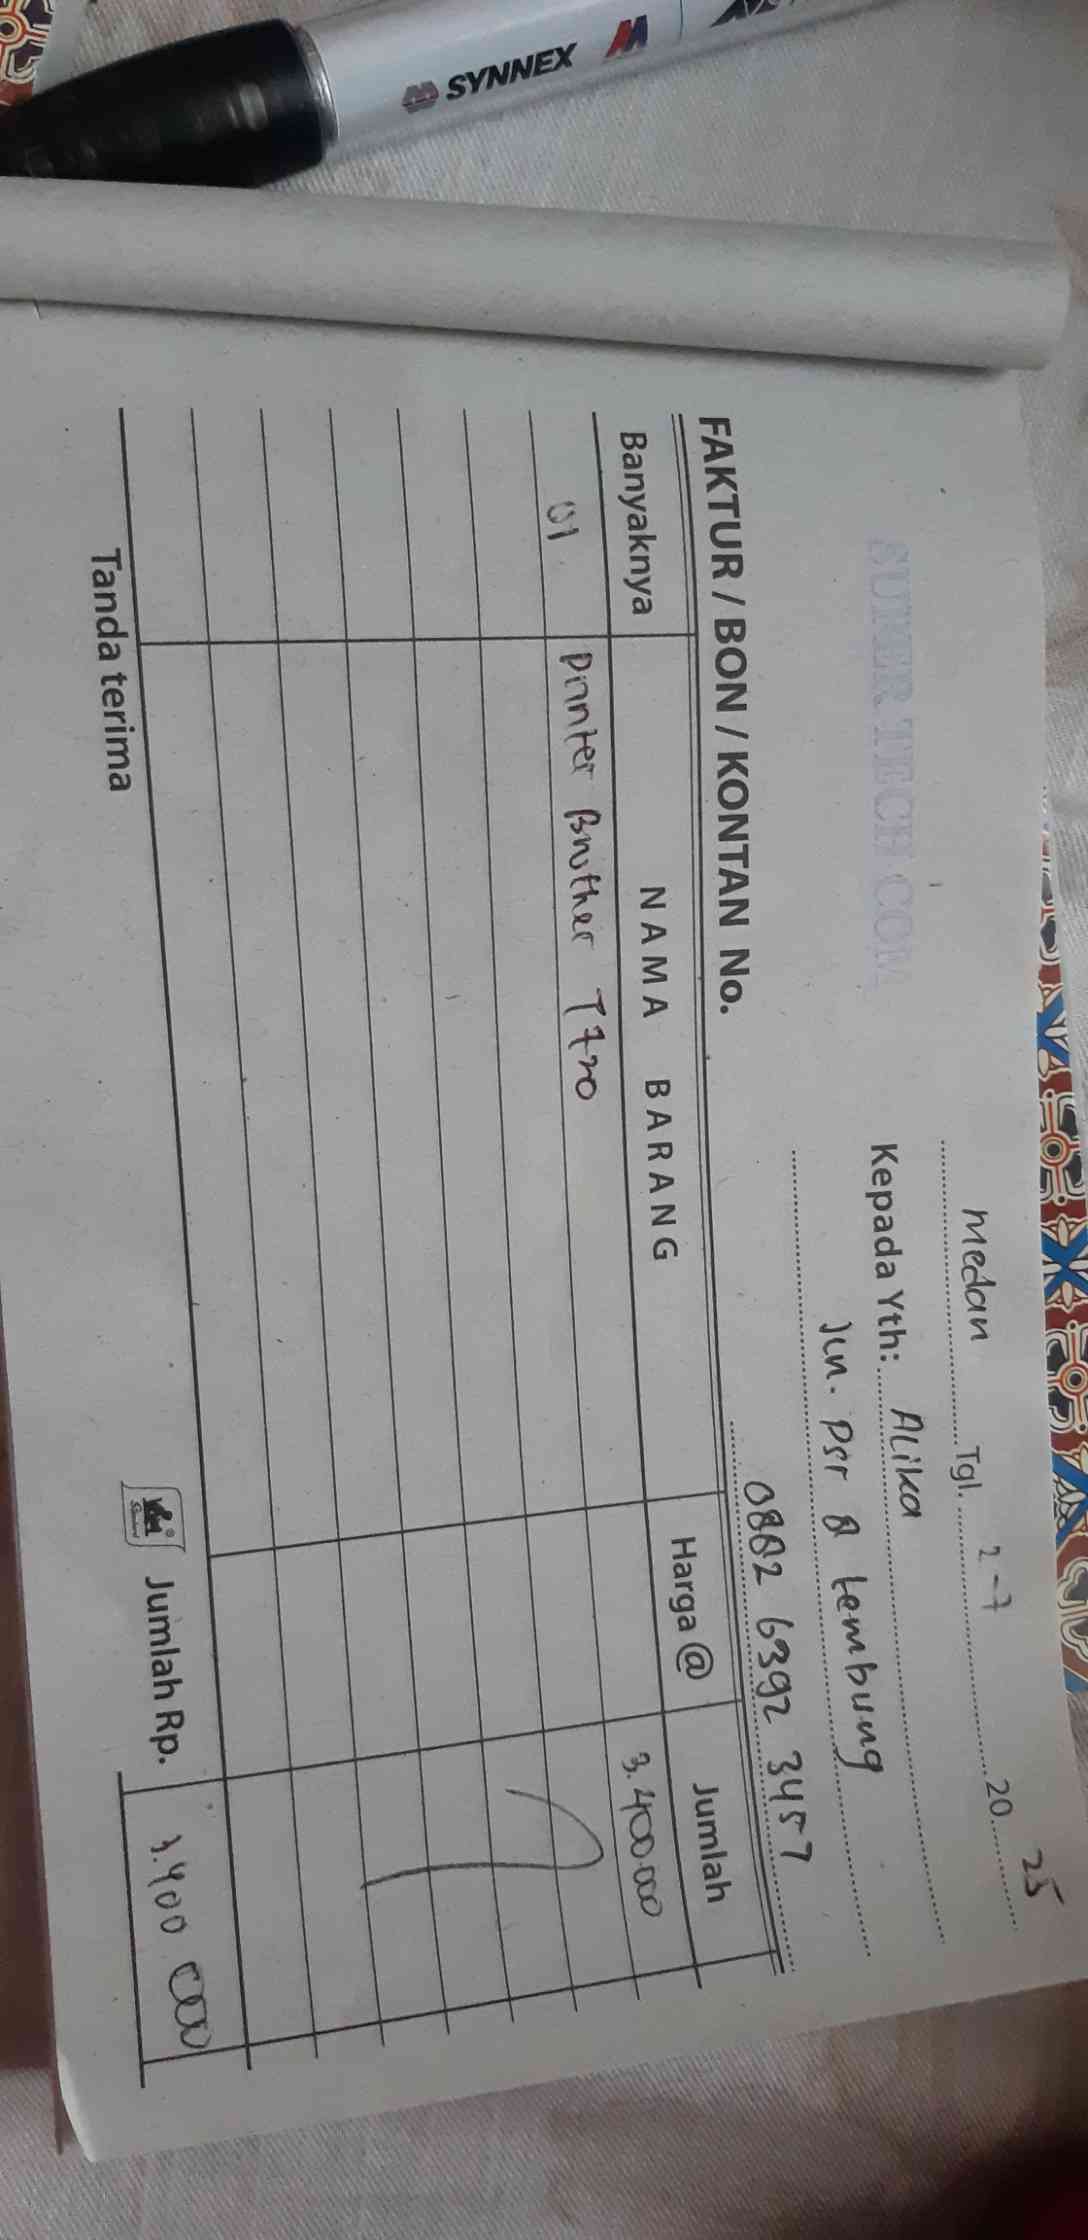 SYNNEX
SUPER TECH COM
Medan Tgl. 2-7 20 25
Kepada Yth: Alika
Jln. Psr 8 tembung
0882 6392 3457
FAKTUR / BON / KONTAN No.
Banyaknya NAMA BARANG Harga @ Jumlah
01 Printer Brother T720 3.400.000
Tanda terima Jumlah Rp. 3.400 000